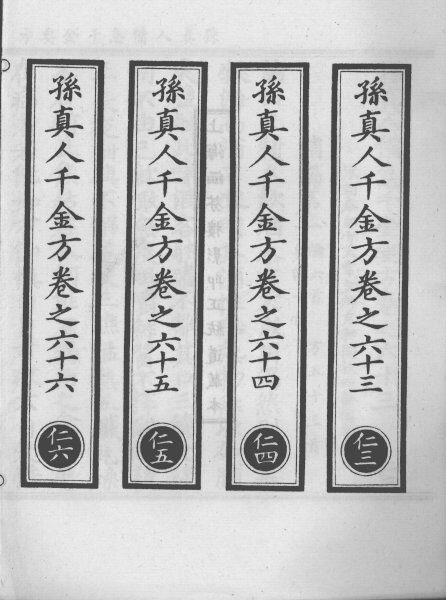 孫真人千金方卷之六十三
仁三
孫真人千金方卷之六十四
仁四
孫真人千金方卷之六十五
仁五
孫真人千金方卷之六十六
仁六